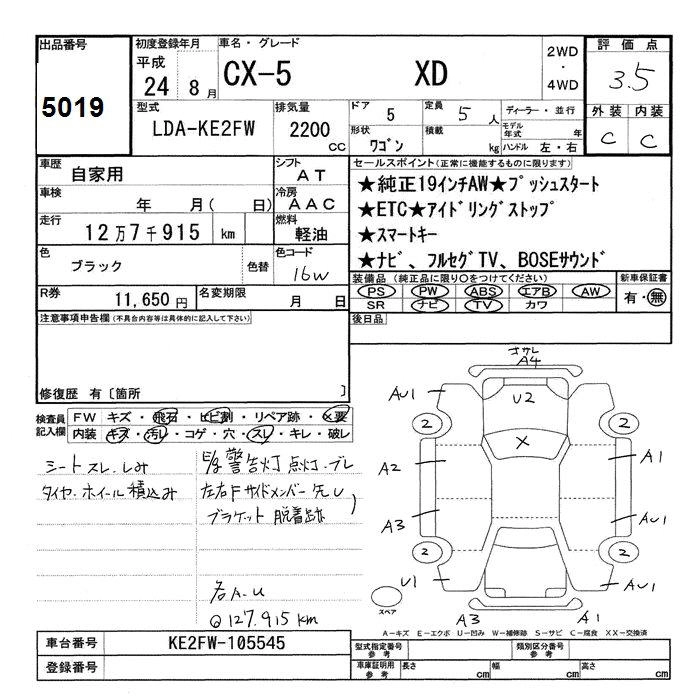 出品番号
5019
初度登録年月
平成
24 8月
車名・グレード
CX-5 XD
2WD
・
4WD
評価点
3.5
外装 内装
C C
型式
LDA-KE2FW
排気量
2200
cc
ドア 5
定員 5人
ディーラー・並行
形状
ワゴン
積載 kg
モデル年式 年
ハンドル 左・右
車歴
自家用
シフト
AT
車検
年 月( 日)
冷房
AAC
走行
12万7千915 km
燃料
軽油
色
ブラック
色替
色コード
16W
R券
11,650円
名変期限
月 日
セールスポイント(正常に機能するものに限ります)
★純正19インチAW★プッシュスタート
★ETC★アイドリングストップ
★スマートキー
★ナビ、フルセグTV、BOSEサウンド
装備品(純正品に限り○をつけてください)
PS PW ABS エアB AW
SR ナビ TV カワ
新車保証書
有・無
後日品
注意事項申告欄(不具合内容等は具体的に記入して下さい)
修復歴 有〔箇所 〕
検査員
記入欄
FW キズ・飛石・ヒビ割・リペア跡・×要
内装 キズ・汚レ・コゲ・穴・スレ・キレ・破レ
シートスレ.しみ
タイヤ.ホイール積込み
警告灯点灯.ブレ
左右Fサイドメンバー先U
ブラケット脱着跡
各A.U
@127.915km
ゴサレ
A4
AU1
U2
2
2
X
A2
A1
A3
AU1
2
2
U1
AU1
スペア
A3
A1
A-キズ E-エクボ U-凹み W-補修跡 S-サビ C-腐食 XX-交換済
車台番号
KE2FW-105545
登録番号
型式指定番号
参考
類別区分番号
参考
車庫証明用
参考
長さ cm
幅 cm
高さ cm